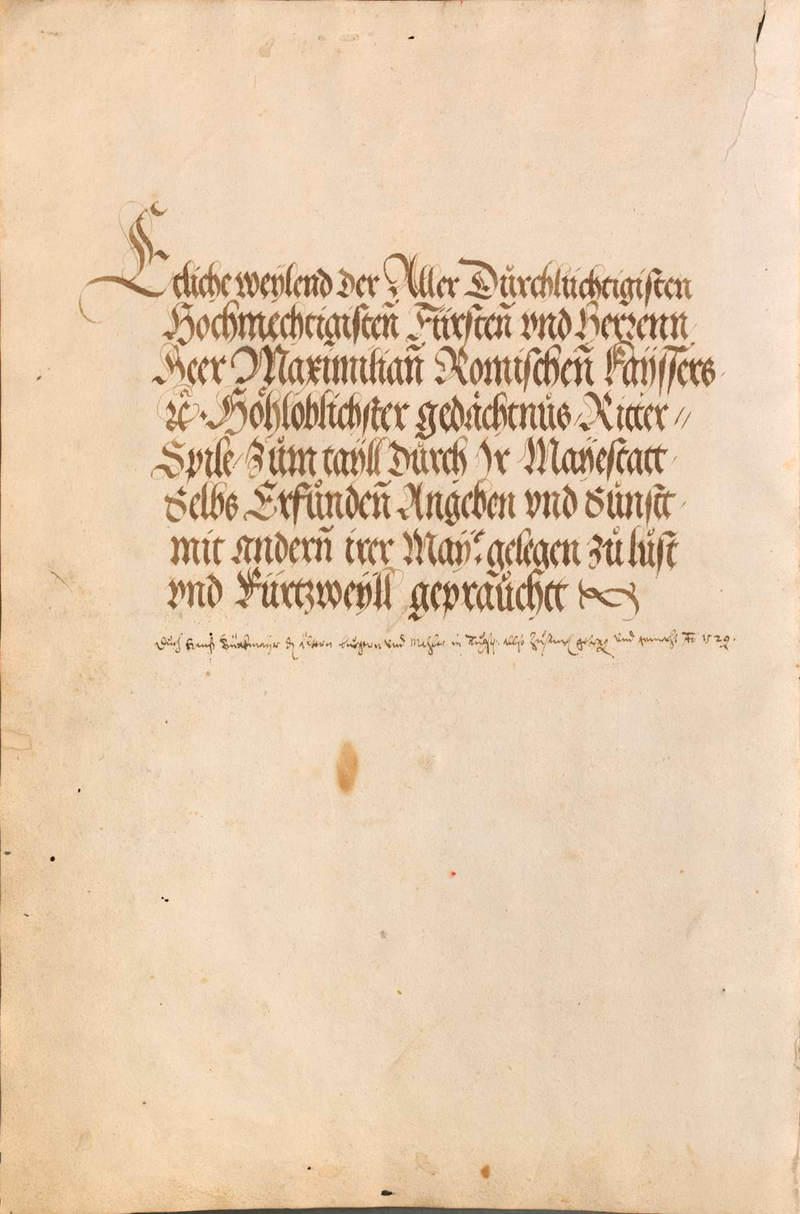 Etliche weylend der Aller Dŭrchlüchtigisten
Hochmechtigisteñ Fürsteñ vnd Herrenn
Heer Maximiliañ Romischeñ Kaÿssers
ꝛc̃. Höhloblichster gedächtnŭs Ritter //
Spile / Zŭm tayll Dŭrch Ir Mayestatt
Selbs Erfŭndeñ Angeben vnd Sŭnstt
mit anderñ irer Maÿt gelegen zŭ lŭst
vnd Kürtzweyll gepraŭchtt
Dŭrch hans Bŭrkmayr burgern vnd Mahler in vnd gemacht 1529.